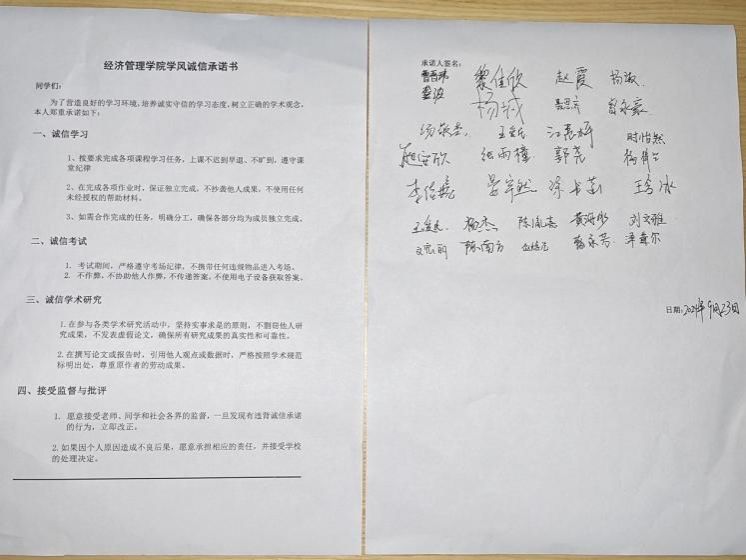 经济管理学院学风诚信承诺书
同学们：
为了营造良好的学习环境，培养诚实守信的学习态度，树立正确的学术观念，
本人郑重承诺如下：
一、诚信学习
1、按要求完成各项课程学习任务，上课不迟到早退、不旷到，遵守课
堂纪律
2、在完成各项作业时，保证独立完成，不抄袭他人成果，不使用任何
未经授权的帮助材料。
3、如需合作完成的任务，明确分工，确保各部分均为成员独立完成。
二、诚信考试
1、考试期间，严格遵守考场纪律，不携带任何违规物品进入考场。
2. 不作弊，不协助他人作弊，不传递答案，不使用电子设备获取答案。
三、诚信学术研究
1.在参与各类学术研究活动中，坚持实事求是的原则，不剽窃他人研
究成果，不发表虚假论文，确保所有研究成果的真实性和可靠性。
2.在撰写论文或报告时，引用他人观点或数据时，严格按照学术规范
标明出处，尊重原作者的劳动成果。
四、接受监督与批评
1. 愿意接受老师、同学和社会各界的监督，一旦发现有违背诚信承诺
的行为，立即改正。
2.如果因个人原因造成不良后果，愿意承担相应的责任，并接受学校
的处理决定。
承诺人签名：
黎佳欣 赵霞 杨淑
杨斌
时怡然
张雨橦 郭尧
杨杰 黄海彤 刘文雅
陈南方
日期：2024年9月23日